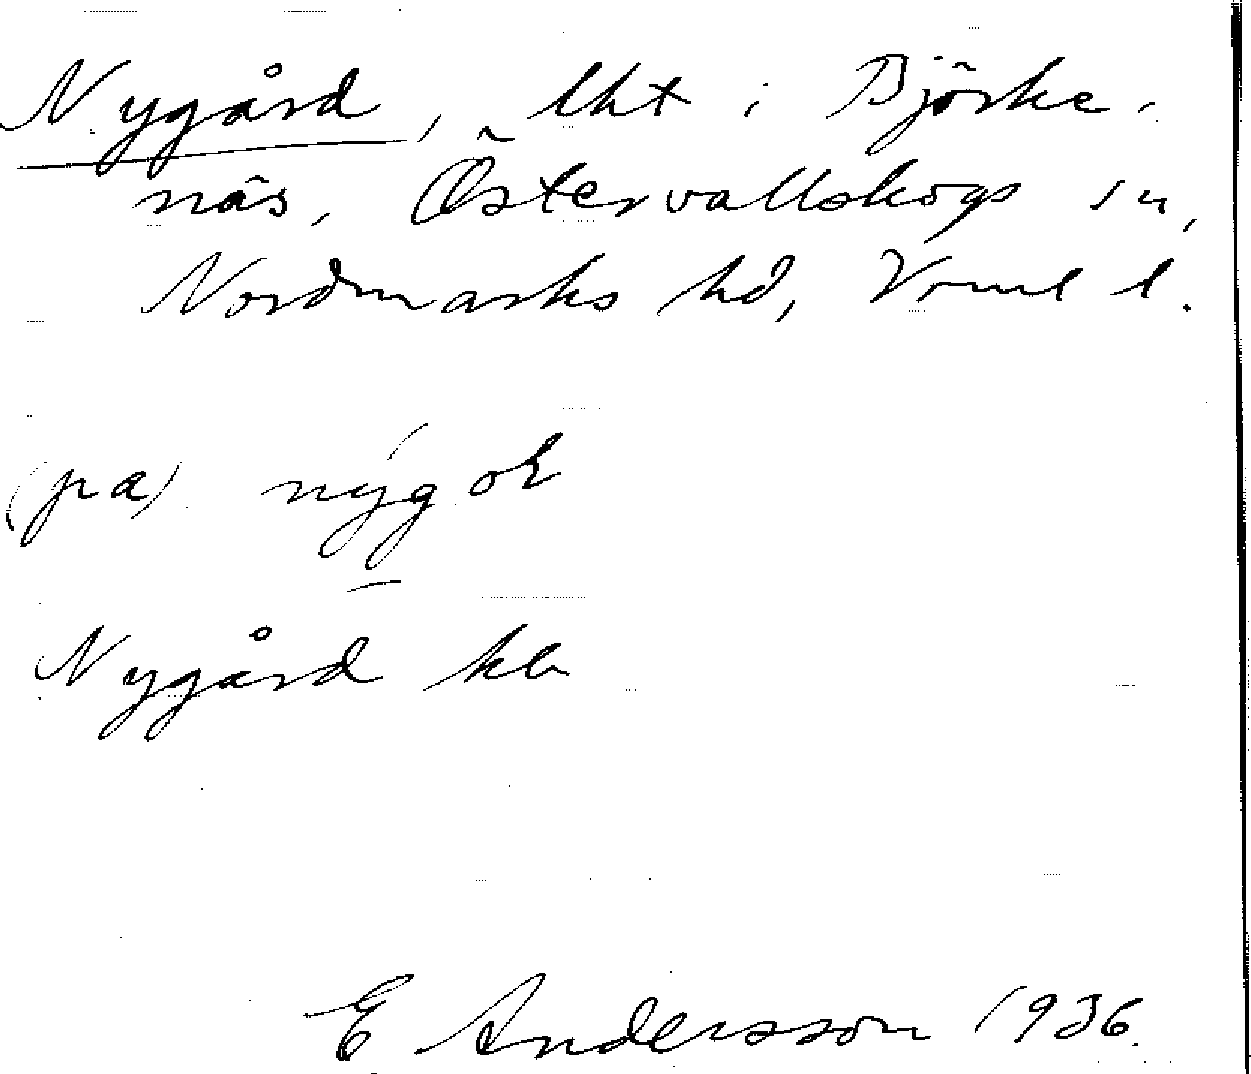 Nygård, lht i Björke-
näs, Östervallskogs sn,
Nordmarks hd, Vrml l.
(pa)
Nygård
E Andersson 1936.